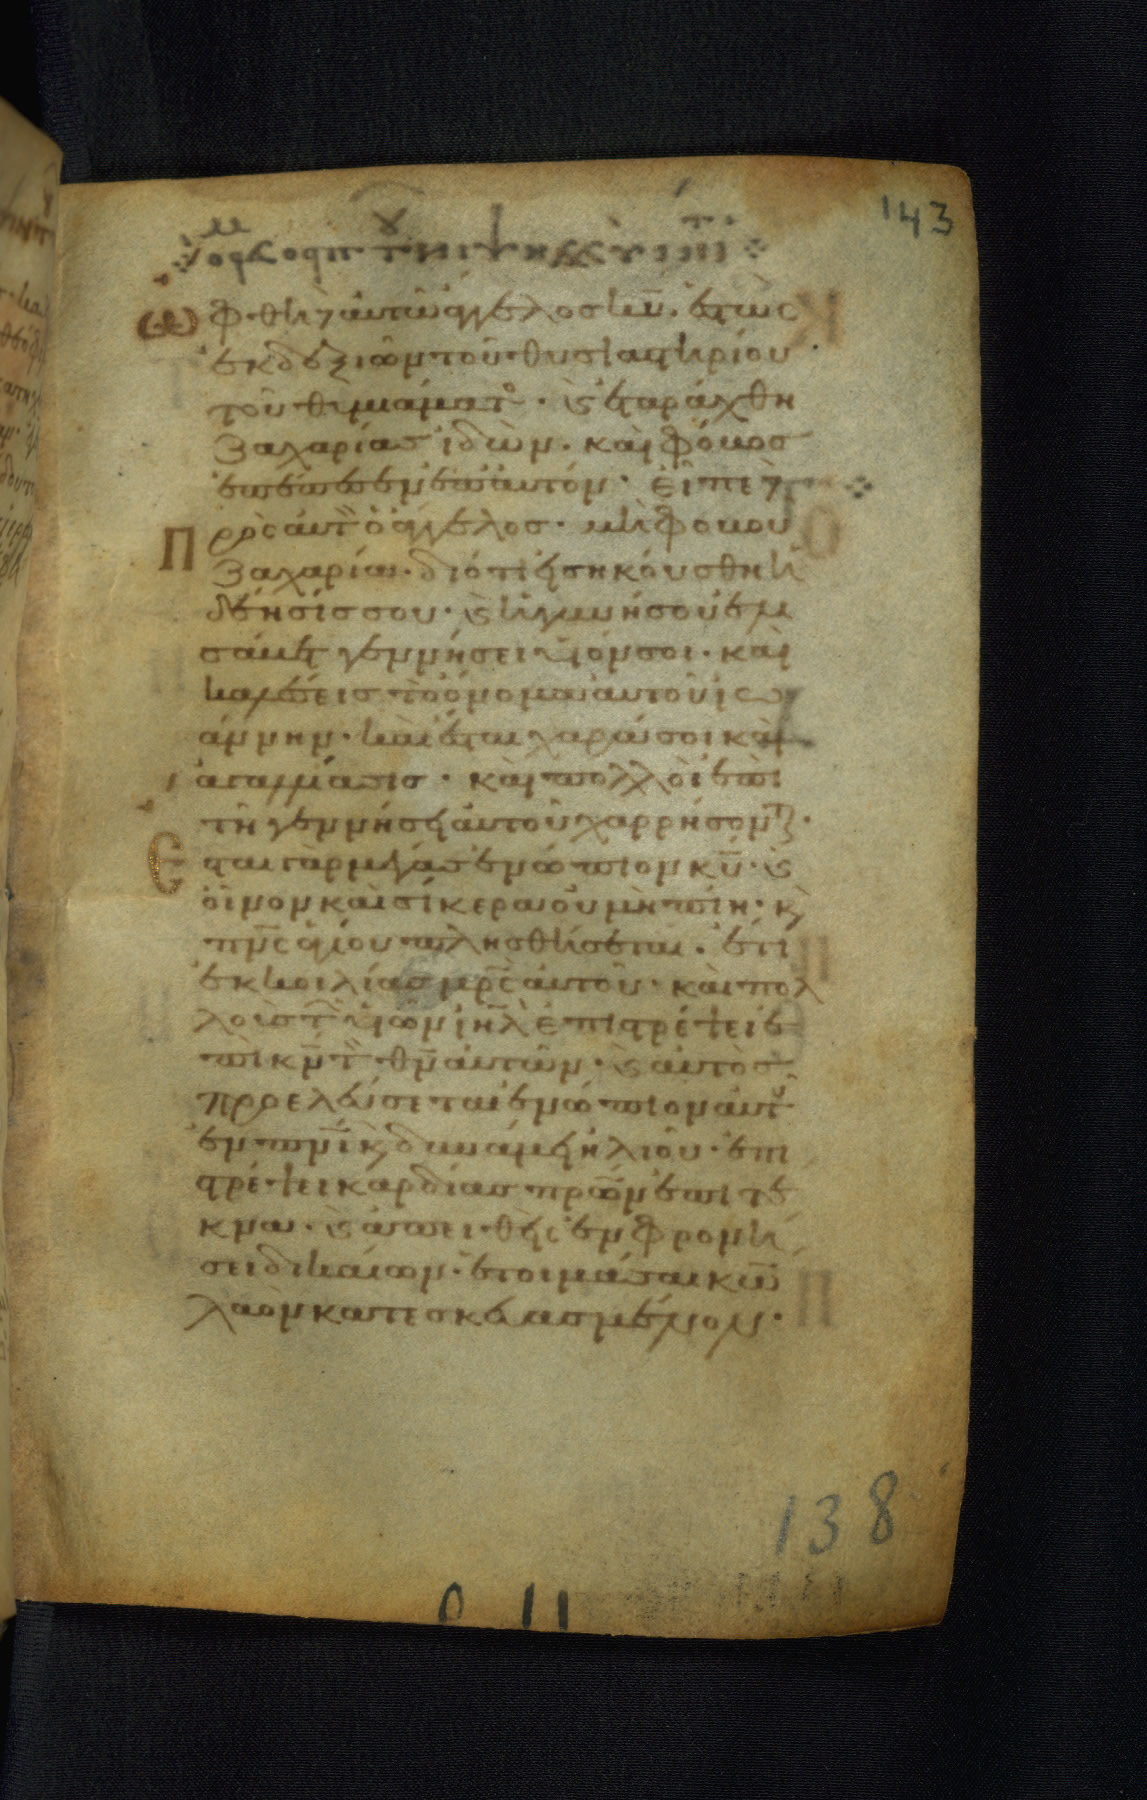 143
ὤφθη δὲ αὐτῶ ἄγγελος κῡ. ἑστὼς
ἐκ δεξιῶν τοῦ θυσιαστηρίου
τοῦ θυμιάματο. ϗ ἐταράχθη
Ζαχαρίας ἰδὼν. καὶ φόβος
ἐπέπεσεν ἐπ αὐτόν. εἶπε δὲ
Πρὸς αὐτ ὁ ἄγγελος. μὴ φοβοῦ
Ζαχαρία. διότι εἰσηκούσθη ἡ
δέησίς σου. ϗ ἡ γυνή σου ἐλι
σάβετ γεννήσει υἱόν σοι. καὶ
καλέσεις τὸ ὄνομα αὐτοῦ ἰω
άννην. καὶ ἔσται χαρά σοι καὶ
ἀγαλλίασις. καὶ πολλοὶ ἐπὶ
τῆ γεννήσει αὐτοῦ χαρήσοντ.
Ἔσται γὰρ μέγας ἐνώπιον κῡ. ϗ
οἶνον καὶ σίκερα οὐ μὴ πίη. ϗ
πνς ἁγίου πλησθήσεται. ἔτι
ἐκ κοιλίας μρς αὐτοῦ. καὶ πολ
λοὺς τ υἱῶν ιηλ ἐπιστρέψει ἐ
πὶ κν τ θν αὐτῶν. ϗ αὐτὸς
προελεύσεται ἐνώπιον αὐτ
ἐν πνι ϗ δυνάμει ἠλιοῦ. ἐπι
στρέψει καρδίας πρων ἐπὶ τέ
κνα. ϗ ἀπειθεῖς ἐν φρονή
σει δικαίων. ἑτοιμάσαι κω
λαὸν κατεσκευασμένον.
138